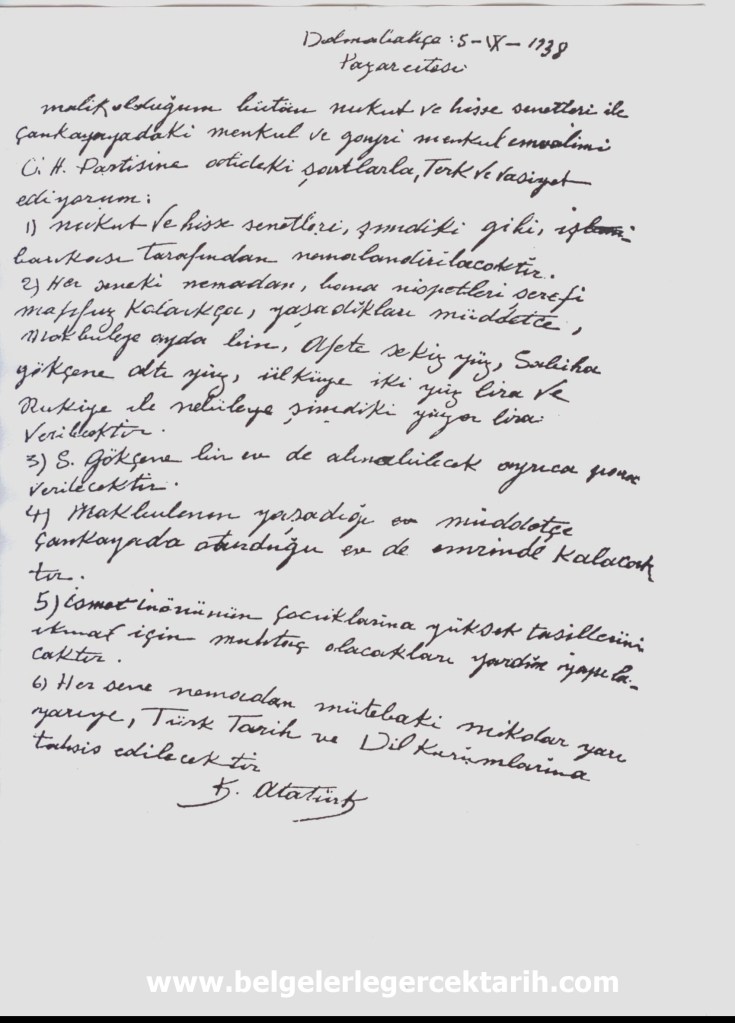 Dolmabahçe: 5-IX-1938
Pazarertesi
malik olduğum bütün nukut ve hisse senetleri ile
Çankayayadaki menkul ve gayri menkul emvalimi
C. H. Partisine atideki şartlarla, Terk ve vasiyet
ediyorum:
1) nukut ve hisse senetleri, şimdiki gibi, iş
bankası tarafından nemalandırılacaktır.
2) Her seneki nemadan, bana nispetleri şerefi
mahfuz kaldıkça, yaşadıkları müddetçe,
Makbuleye ayda bin, Afete sekiz yüz, Sabiha
gökçene altı yüz, ülküye iki yüz lira ve
Rukiye ile nebileye şimdiki yüzer lira
verilecektir.
3) S. Gökçene bir ev de alınabilecek ayrıca para
verilecektir.
4) Makbulenin yaşadığı müddetçe
Çankayada oturduğu ev de emrinde kalacak
tır.
5) ismet inönünün çocuklarına yüksek tasillerini
ikmal için muhtaç olacakları yardım yapıla-
caktır.
6) Her sene nemadan mütebaki mikdar yarı
yarıya, Türk Tarih ve Dil Kurumlarına
tahsis edilecektir
K. Atatürk
www.belgelerlegercektarih.com